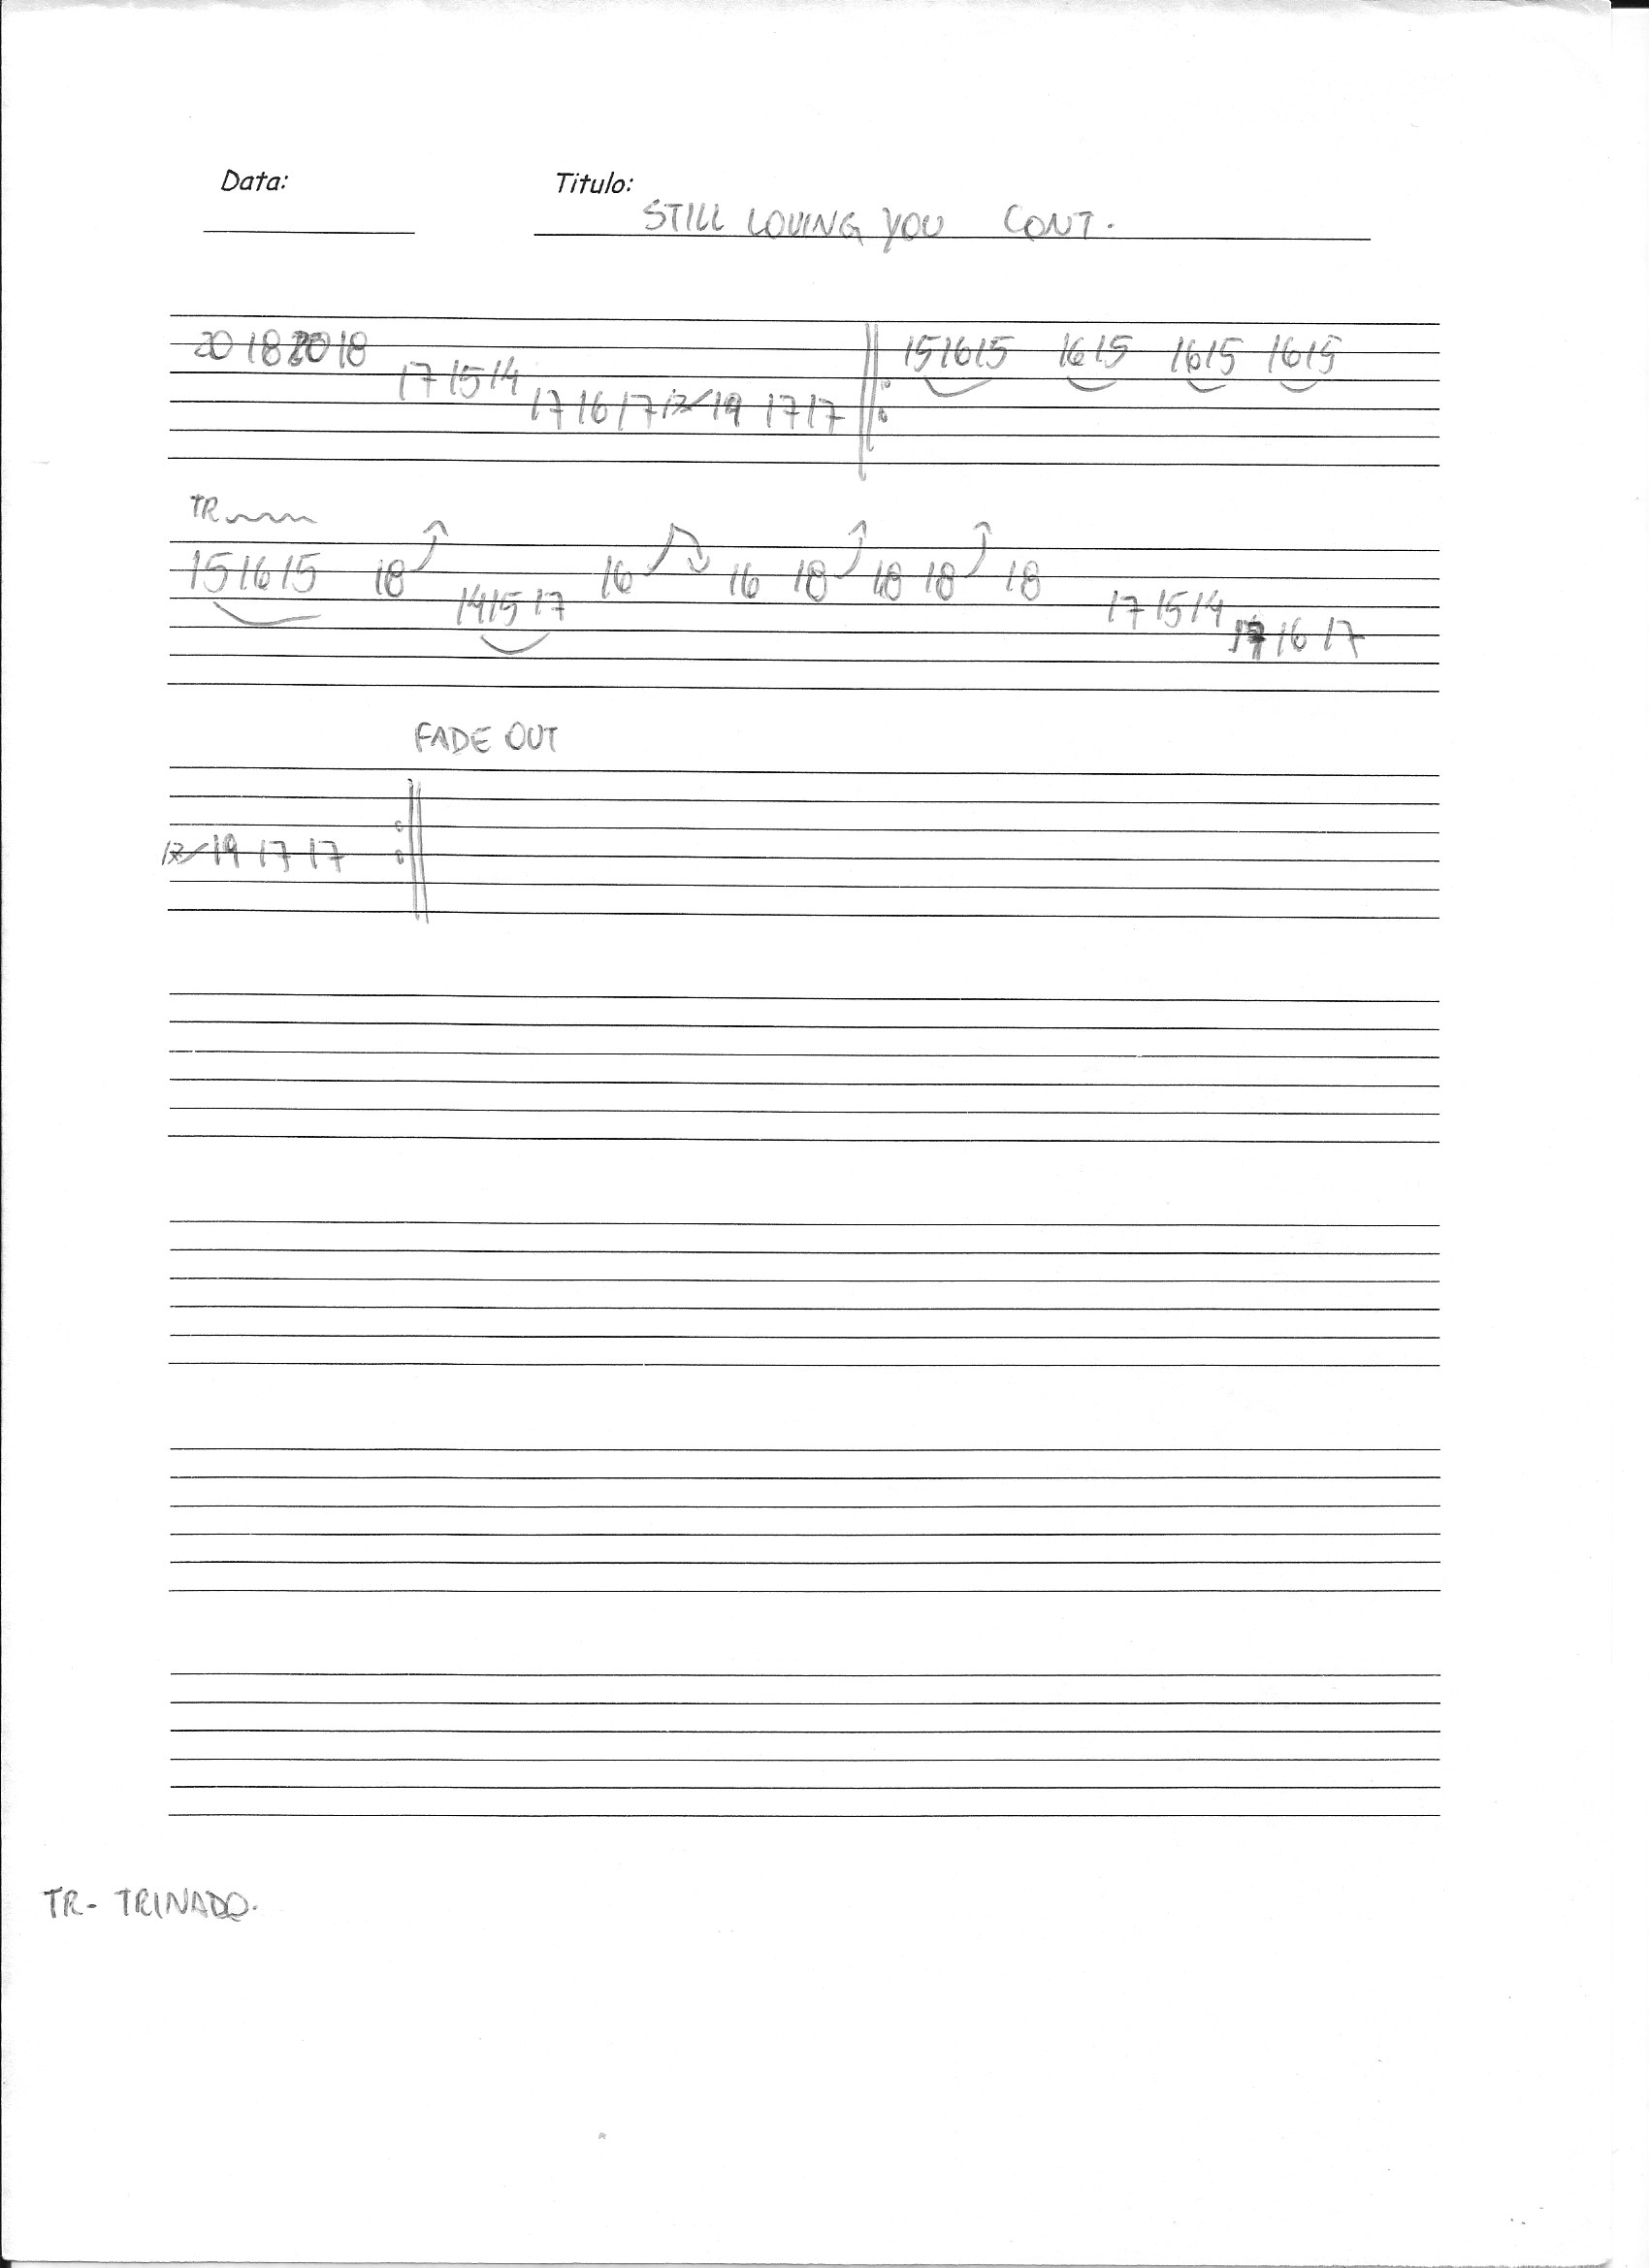 Data: Titulo:
STILL LOVING YOU CONT.
20 18 20 18 15 16 15 16 15 16 15 16 15
17 15 14
17 16 17 17 19 17 17
TR
15 16 15 18 16 16 18 18 18 18
14 15 17 17 15 14
17 16 17
FADE OUT
17 19 17 17
TR- TRINADO.